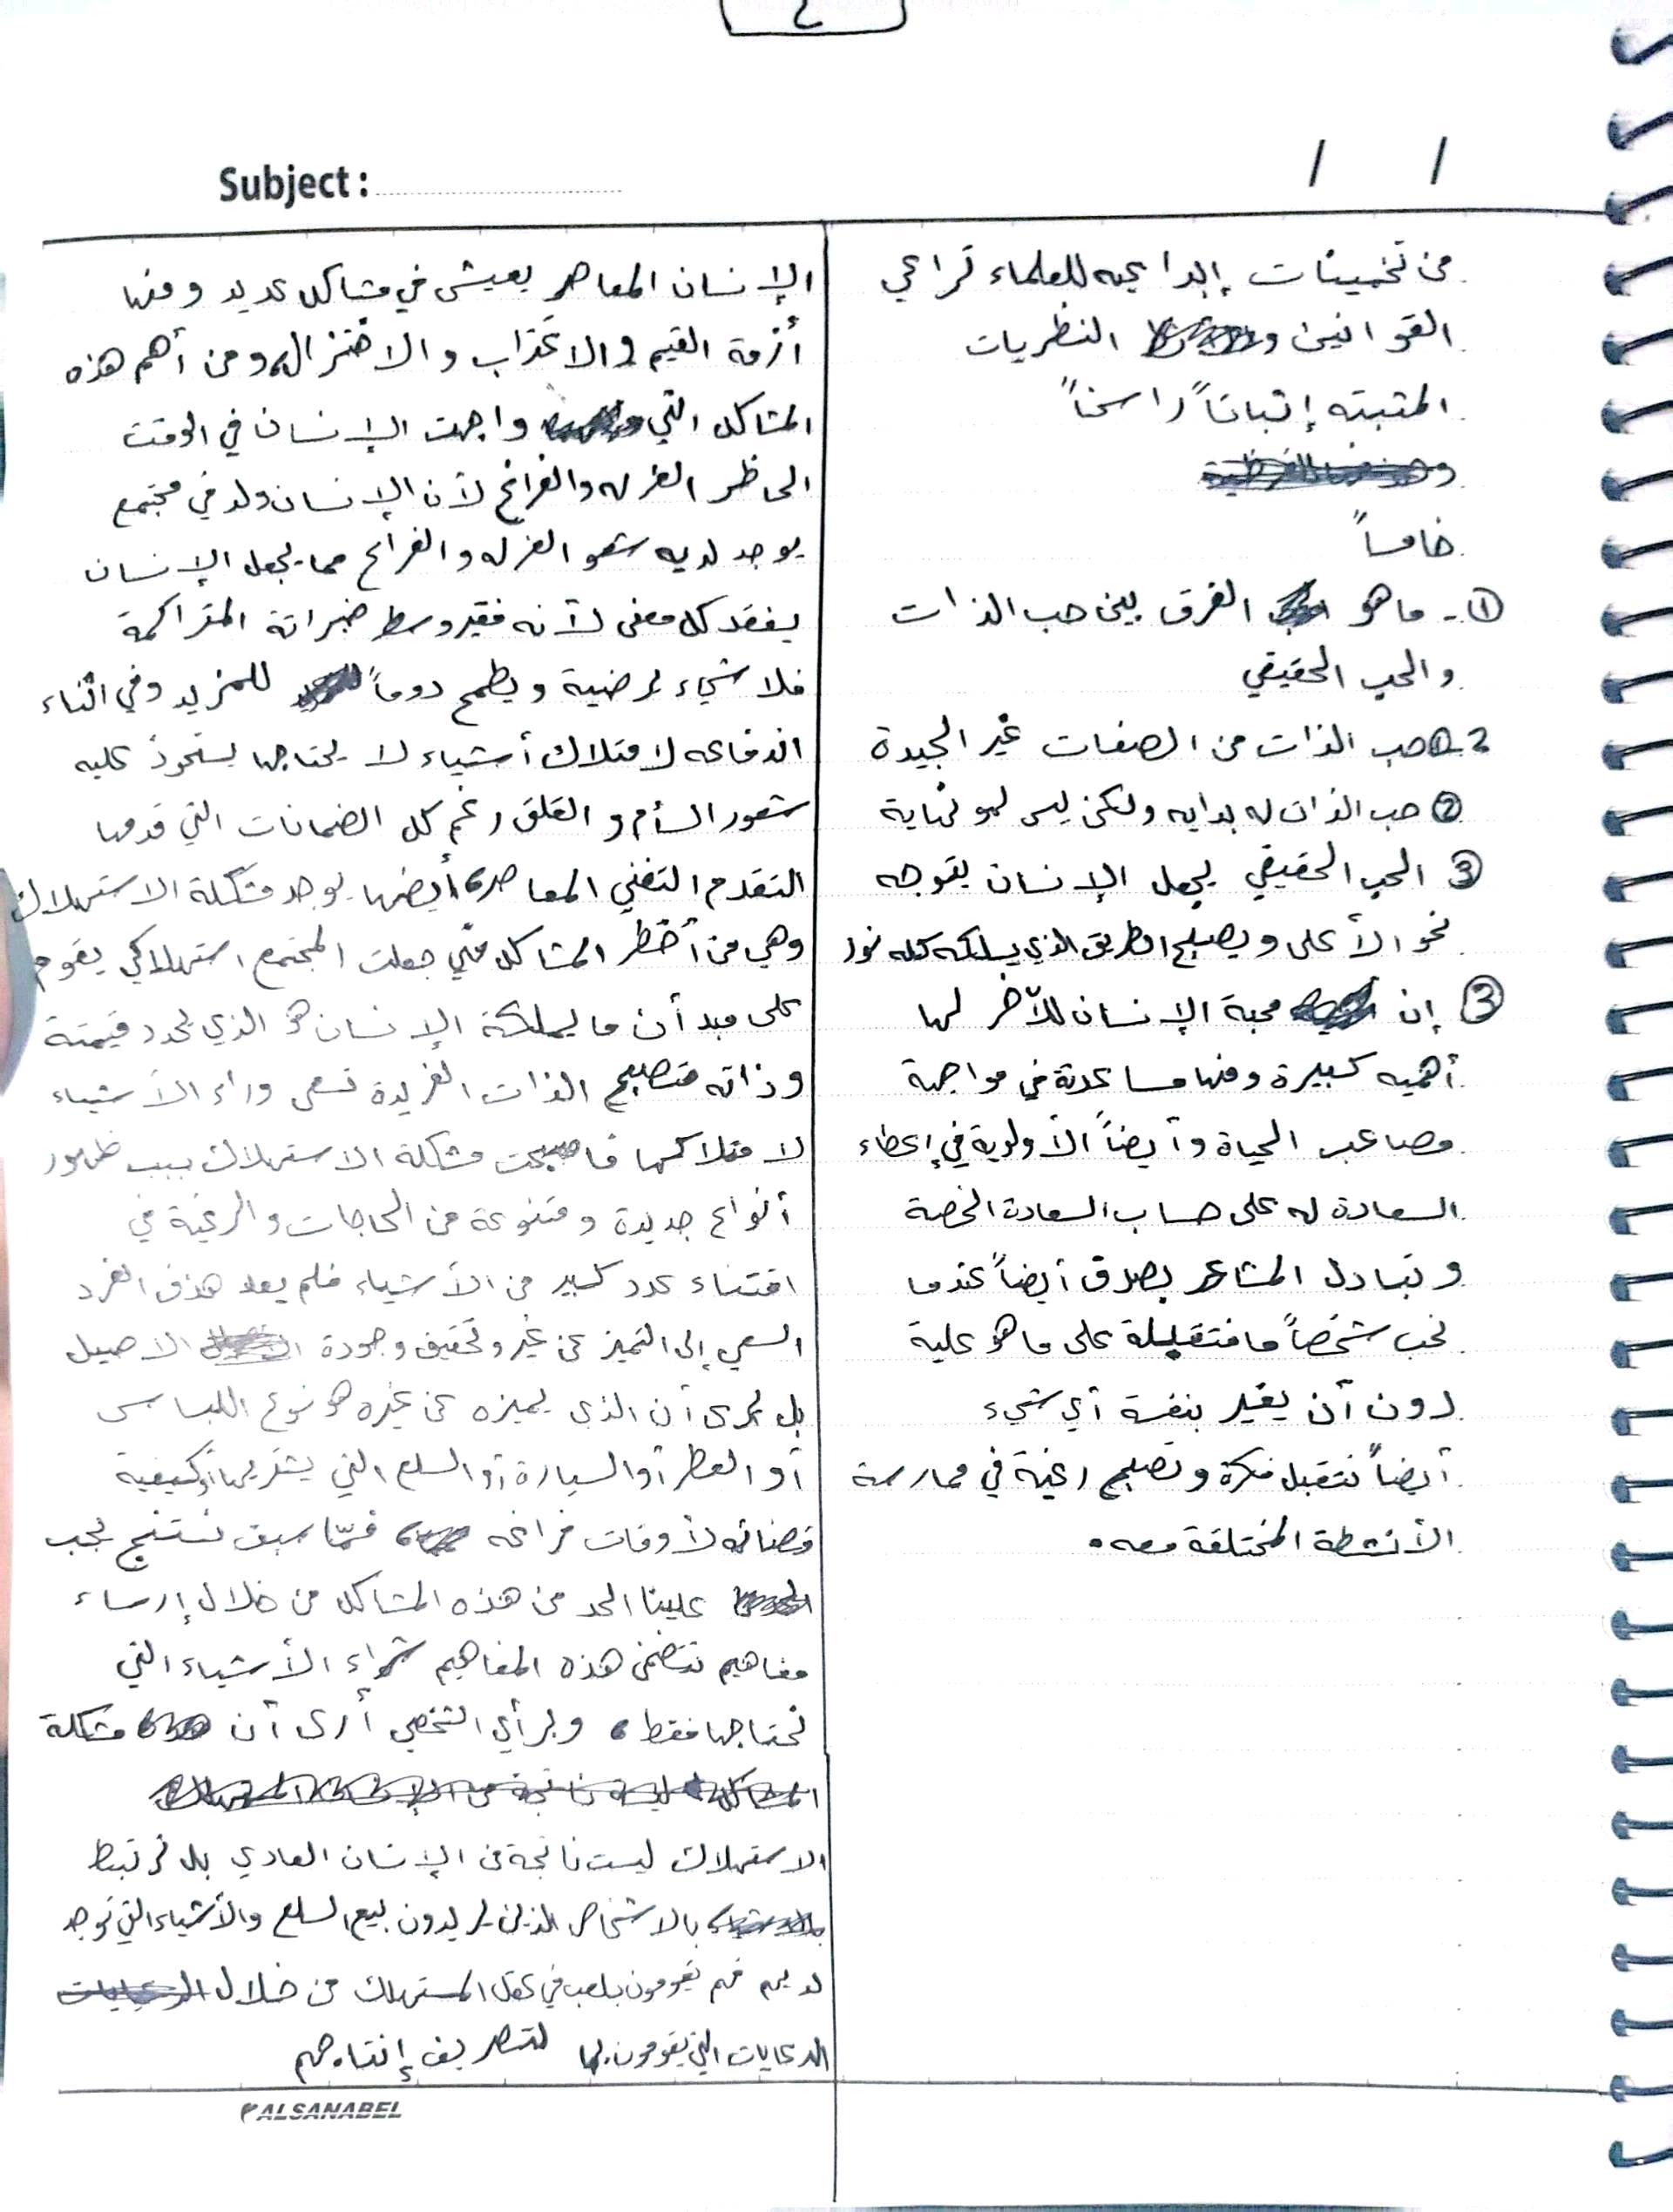 2
Subject :
/ /
من تخمينات إبداعيه للعلماء تراعي
القوانين و النظريات
المتبته إثباتاً راسخاً
خامساً
① - ما هو الفرق بين حب الذات
والحب الحقيقي
2- ① حب الذات من الصفات غير الجيدة
② حب الذات له بدايه ولكن ليس لهو نهاية
③ الحب الحقيقي يجعل الإنسان يتوجه
نحو الأعلى ويصبح الطريق الذي يسلكه كله نور
③ إن محبة الإنسان للآخر لها
أهميه كبيرة ومنها مساعدتة في مواجهة
مصاعب الحياة وأيضاً الأولوية في إعطاء
السعادة له على حساب السعادة الخصة
وتبادل المشاعر بصدق أيضاً عندما
نحب شخصاً ما فتقبلة على ما هو علية
دون أن يغير بنفسة أي شيء
أيضاً نتقبل فكرة وتصبح رغبة في ممارسة
الأنشطة المختلفة معه.
الإنسان المعاصر يعيش في مشاكل عديد ومنها
أزمة القيم والاغتراب والاختزال، ومن أهم هذه
المشاكل التي واجهت الإنسان في الوقت
الحاظر العزله والفراغ لأن الإنسان ولد في مجتمع
يوجد لديه العزله والفراغ مما يجعل الإنسان
يفقد كل معنى لأنه فقير وسط خبراتة المتراكمة
فلا شيء يرضية ويطمح دوماً للمزيد وفي اثناء
اندفاعه لامتلاك أشياء لا يحتاجها يستحوذ عليه
شعور السأم والقلق رغم كل الضمانات التي قدمها
التقدم التقني المعاصر، أيضها يوجد مشكلة الاستهلاك
وهي من أخطر المشاكل جعلت المجتمع استهلاكي يقوم
على مبدأ أن ما يملكة الإنسان هو الذي يحدد قيمتة
وذاته فتصبح الذات الفريدة تسعى وراء الأشياء
لامتلاكها فاصبحت مشكلة الاستهلاك بسبب ظهور
أنواع جديدة ومتنوعة من الحاجات والرغبة في
اقتناء عدد كبير من الأشياء فلم يعد هذف الفرد
السعي إلى التميز عن غير وتحقيق وجودة الاصيل
بل يرى أن الذي يميزه عن غيره هو نوع اللباس
أو العطر أو السيارة أو السلع التي يشتريها أو كيفية
قضائه لأوقات فراغه فممّا سبق نستنتج يجب
علينا الحد من هذه المشاكل من خلال إرساء
مفاهيم تتضمن هذه المفاهيم شراء الأشياء التي
نحتاجها فقط، وبرأي الشخصي أرى أن مشكلة
الاستهلاك ليست ناتجة من الإنسان العادي بل ترتبط
بالاشخاص الذين يريدون بيع السلع والأشياء التي توجد
لديهم فهم يقومون بلعب في عقل المستهلك من خلال
الدعايات التي يقومون بها لتصريف إنتاجهم
ALSANABEL